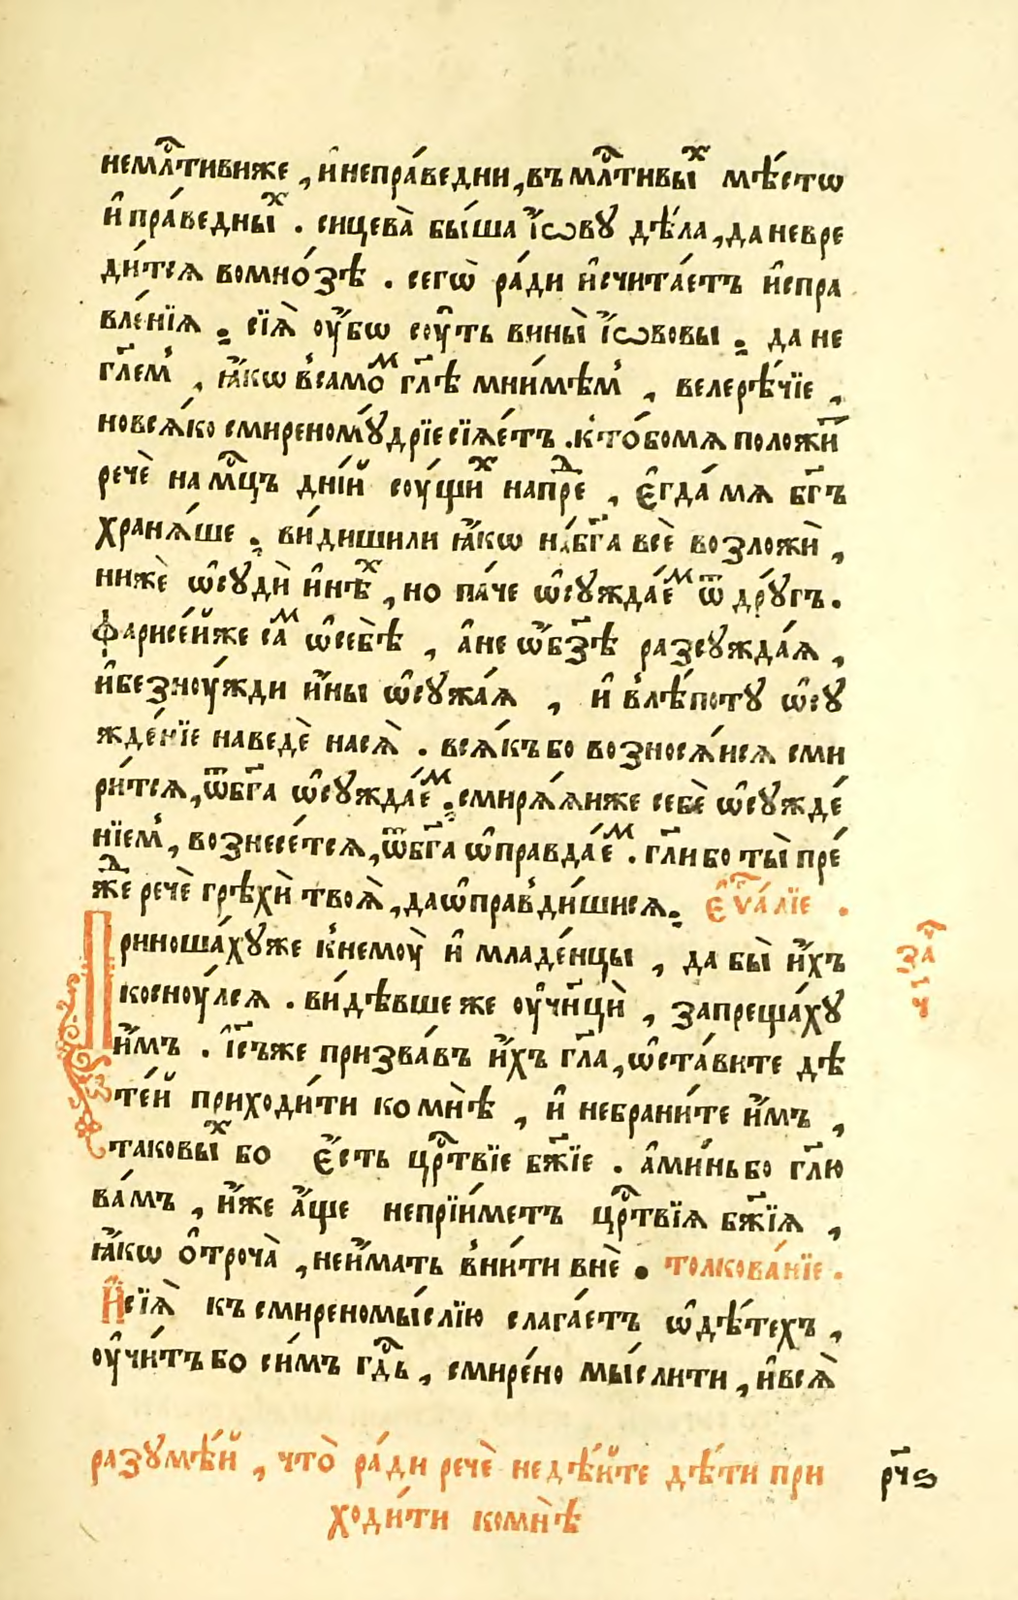 немл҇тивиже , и҆ непра́ведни , въ мл҇тивы́х мѣ́стѡ
и҆ пра́ведных . сицева̀ бы́ша і҆́ѡву дѣ́ла , да невре
ди́тсѧ вомно́зѣ . сегѡ̀ ра́ди и҆счита́етъ и҆спра
вле́нїѧ . сїѧ̀ оу҆́бѡ сꙋ́ть вины̀ і҆́ѡвовы . да не
гл҃ем , ꙗ҆́кѡ в самом гл҃ѣ мни́мѣм , велерѣ́чїе ,
новсѧ́ко смиреномꙋ́дрїе сїѧ́етъ . кто́ бо мѧ положи́т
речѐ на мц҇ъ дні́й сꙋ́щих напред , є҆гда́ мѧ бг҃ъ
хранѧ́ше . ви́дишили ꙗ҆́кѡ на бг҃а всѐ возложѝ ,
нижѐ ѡ҆сꙋдѝ и҆нѣх , но па́че ѡ҆сꙋжда́ем ѿ дрꙋ́гъ .
фарисе́йже сам ѡ҆себѣ̀ , а҆не ѡ҆ бз҃ѣ разсꙋжда́ѧ ,
и҆ безноу́жди и҆́ны ѡ҆сꙋжа́ѧ , и҆ в лѣ́потꙋ ѡ҆сꙋ
жде́нїе наведѐ насѧ̀ . всѧ́къ бо возносѧ́исѧ сми
ри́тсѧ , ѿ бг҃а ѡ҆сꙋжда́ем . смирѧ́ѧиже себѐ ѡ҆сꙋжде́
нїем , вознесе́тсѧ , ѿ бг҃а ѡ҆правда́ем . гл҃и бо ты̀ пре́
жде речѐ грѣхѝ твоѧ̀ , да ѡ҆правди́шисѧ . є҆ѵⷢ҇а́лїе .
Приноша́хꙋже к немоу̀ и҆ младе́нцы , да бы̀ и҆́хъ
косноу́лсѧ . ви́дѣвше же оу҆чн҃цѝ , запреща́хꙋ
и҆́мъ . і҆с҃ъже призва́въ и҆́хъ гл҃а , ѡ҆ста́вите дѣ
те́й приходи́ти ко мнѣ̀ , и҆ небрани́те и҆́мъ ,
таковы́х бо є҆́сть црⷭ҇твїе бж҃їе . а҆ми́нь бо гл҃ю
ва́мъ , и҆́же а҆́ще непрїи́метъ црⷭ҇твїѧ бж҃їѧ ,
ꙗ҆́кѡ ѻ҆троча̀ , неи҆́мать вни́ти внѐ . толкова́нїе .
И҆ сїѧ̀ къ смиреномы́слїю слага́етъ ѡ҆ дѣ́техъ ,
оу҆чи́тъ бо си́мъ гдⷭ҇ь , смире́но мы́слити , и҆ всѧ̀
разꙋмѣ́й , что̀ ра́ди речѐ недѣ́йте дѣ́ти при
ходи́ти ко мнѣ̀
за҇
рч҃ѕ